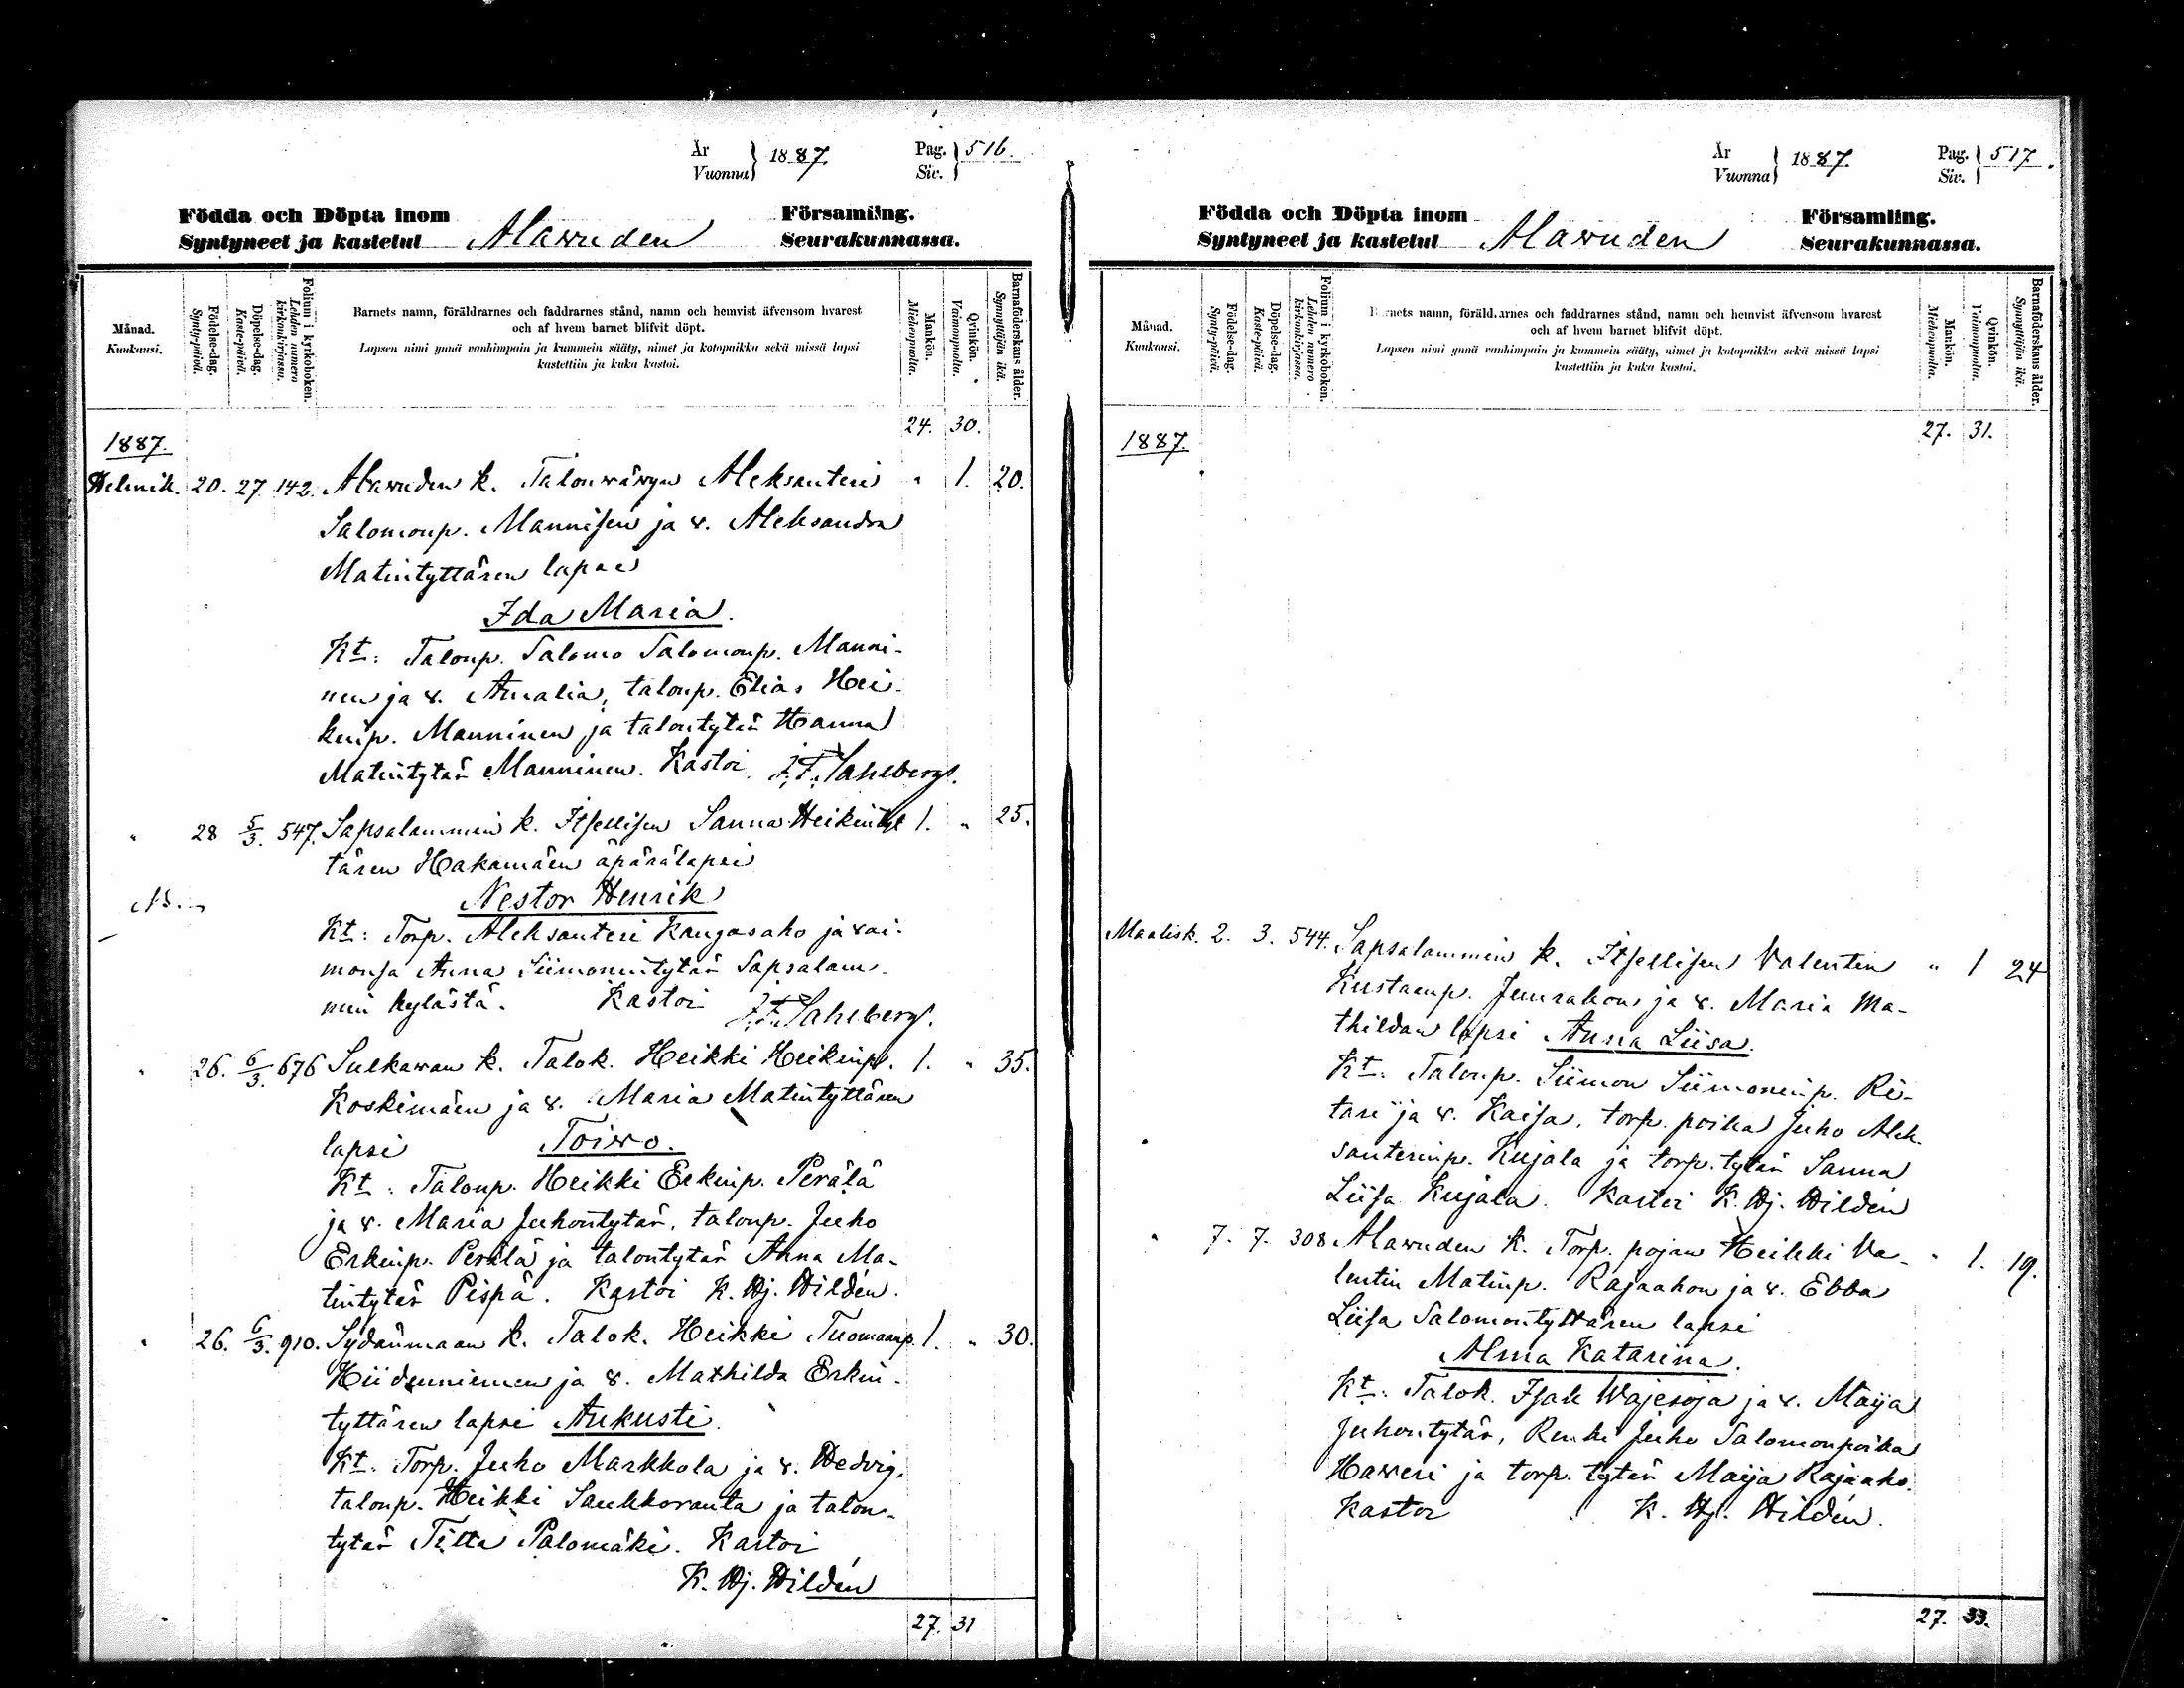 År
Vuonna } 1887.
Pag.
Siv. } 516.
Födda och Döpta inom Församling.
Syntyneet ja kastetut Alawuden Seurakunnassa.
Månad.
Kuukausi.
Födelse-dag.
Synty-päivä.
Döpelse-dag.
Kaste-päivä.
Folium i kyrkoboken.
Lehden numero
kirkonkirjassa.
Barnets namn, föräldrarnes och faddrarnes stånd, namn och hemvist äfvensom hvarest
och af hvem barnet blifvit döpt.
Lapsen nimi ynnä vanhimpain ja kummein sääty, nimet ja kotopaikka sekä missä lapsi
kastettiin ja kuka kastoi.
Mankön.
Miehenpuolta.
Qvinkön.
Vaimonpuolta.
Barnaföderskans ålder.
Synnyttäjän ikä.
24. 30.
1887.
Helmik. 20. 27. 142. Alawuden k. Talonwäwyn Aleksanteri " 1. 20.
Salomonp. Mannisen ja w. Aleksandra
Matintyttären lapsi
Ida Maria.
Kt: Talonp. Salomo Salomonp. Manni-
nen ja w. Amalia, talonp. Elias Hei-
kinp. Manninen ja talontytär Hanna
Matintytär Manninen. Kastoi J. F. Sahlberg.
" 28 5/3. 547. Sapsalammin k. Itsellisen Sanna Heikinty 1. " 25.
tären Hakamäen äpärälapsi
Nestor Henrik
Kt: Torp. Aleksanteri Kangasaho ja wai-
monsa Anna Siimonintytär Sapsalam-
min kylästä. Kastoi J. F. Sahlberg.
" 26. 6/3. 676 Sulkawan k. Talok. Heikki Heikinp. 1. " 35.
Koskimäen ja w. Maria Matintyttären
lapsi Toiwo.
Kt: Talonp. Heikki Erkinp. Perälä
ja w. Maria Juhontytär, talonp. Juho
Erkinp. Perälä ja talontytär Anna Ma-
tintytär Pispä. Kastoi K. Hj. Hildén.
" 26. 6/3. 910. Sydänmaan k. Talok. Heikki Tuomaanp. 1. " 30.
Hiidenniemen ja w. Mathilda Erkin-
tyttären lapsi Aukusti.
Kt: Torp. Juho Markkola ja w. Hedvig,
talonp. Heikki Saukkoranta ja talon-
tytär Titta Palomäki. Kastoi
K. Hj. Hildén
27. 31
År
Vuonna } 1887.
Pag.
Siv. } 517.
Födda och Döpta inom Församling.
Syntyneet ja kastetut Alawuden Seurakunnassa.
Månad.
Kuukausi.
Födelse-dag.
Synty-päivä.
Döpelse-dag.
Kaste-päivä.
Folium i kyrkoboken.
Lehden numero
kirkonkirjassa.
Barnets namn, föräldrarnes och faddrarnes stånd, namn och hemvist äfvensom hvarest
och af hvem barnet blifvit döpt.
Lapsen nimi ynnä vanhimpain ja kummein sääty, nimet ja kotopaikka sekä missä lapsi
kastettiin ja kuka kastoi.
Mankön.
Miehenpuolta.
Qvinkön.
Vaimonpuolta.
Barnaföderskans ålder.
Synnyttäjän ikä.
27. 31.
1887.
Maalisk. 2. 3. 544. Sapsalammin k. Itsellisen Valentin " 1 24
Kustaanp. Juurakon ja w. Maria Ma-
thildan lapsi Anna Liisa.
Kt: Talonp. Siimon Siimoninp. Ri-
tari ja w. Kaisa, torp. poika Juho Alek-
santerinp. Kujala ja torp. tytär Sanna
Liisa Kujala. Kastoi K. Hj. Hildén
" 7. 7. 308 Alawuden k. Torp. pojan Heikki Va- " 1. 19.
lentin Matinp. Rajaahon ja w. Ebba
Liisa Salomontyttären lapsi
Alma Katarina.
Kt: Talok. Isak Wajesoja ja w. Maija
Juhontytär, Renki Juho Salomonpoika
Haweri ja torp. tytär Maija Rajaaho.
Kastoi K. Hj. Hildén.
27. 33.